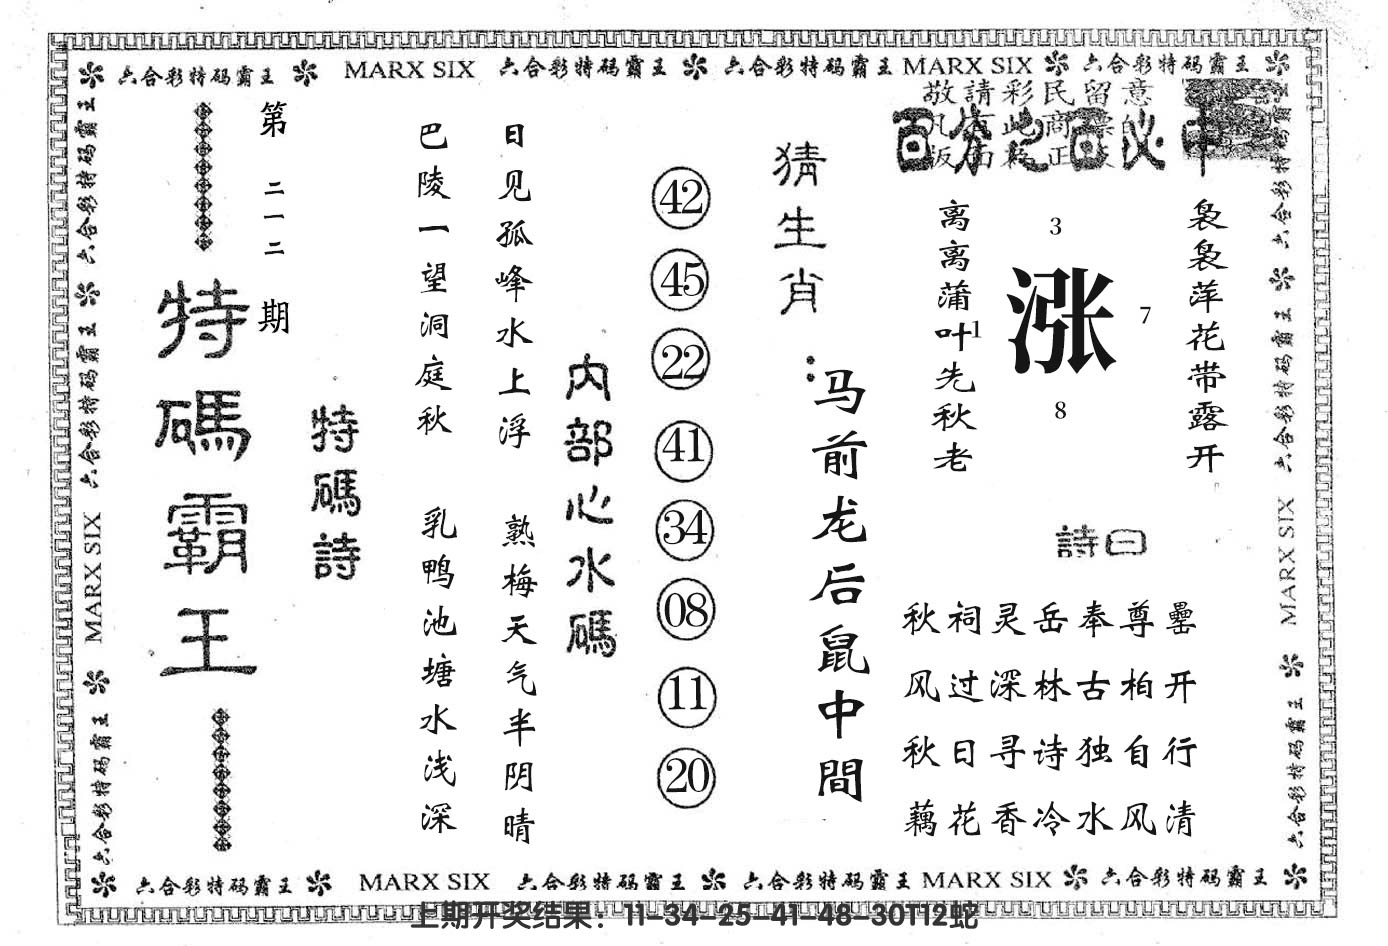 六合彩特码霸王 MARX SIX 六合彩特码霸王 六合彩特码霸王 MARX SIX 六合彩特码霸王
敬請彩民留意
百分之百必中
袅袅萍花带露开
3
涨
7
1
8
离离蒲叶先秋老
詩曰
秋祠灵岳奉尊罍
风过深林古柏开
秋日寻诗独自行
藕花香冷水风清
猜生肖：
马前龙后鼠中間
42
45
22
41
34
08
11
20
内部心水碼
日见孤峰水上浮
熟梅天气半阴晴
巴陵一望洞庭秋
乳鸭池塘水浅深
特碼詩
第二一二期
特碼霸王
六合彩特码霸王 六合彩特码霸王 MARX SIX 六合彩特码霸王
六合彩特码霸王 六合彩特码霸王 MARX SIX 六合彩特码霸王
六合彩特码霸王 MARX SIX 六合彩特码霸王 六合彩特码霸王 MARX SIX 六合彩特码霸王
上期开奖结果：11-34-25-41-48-30T12蛇